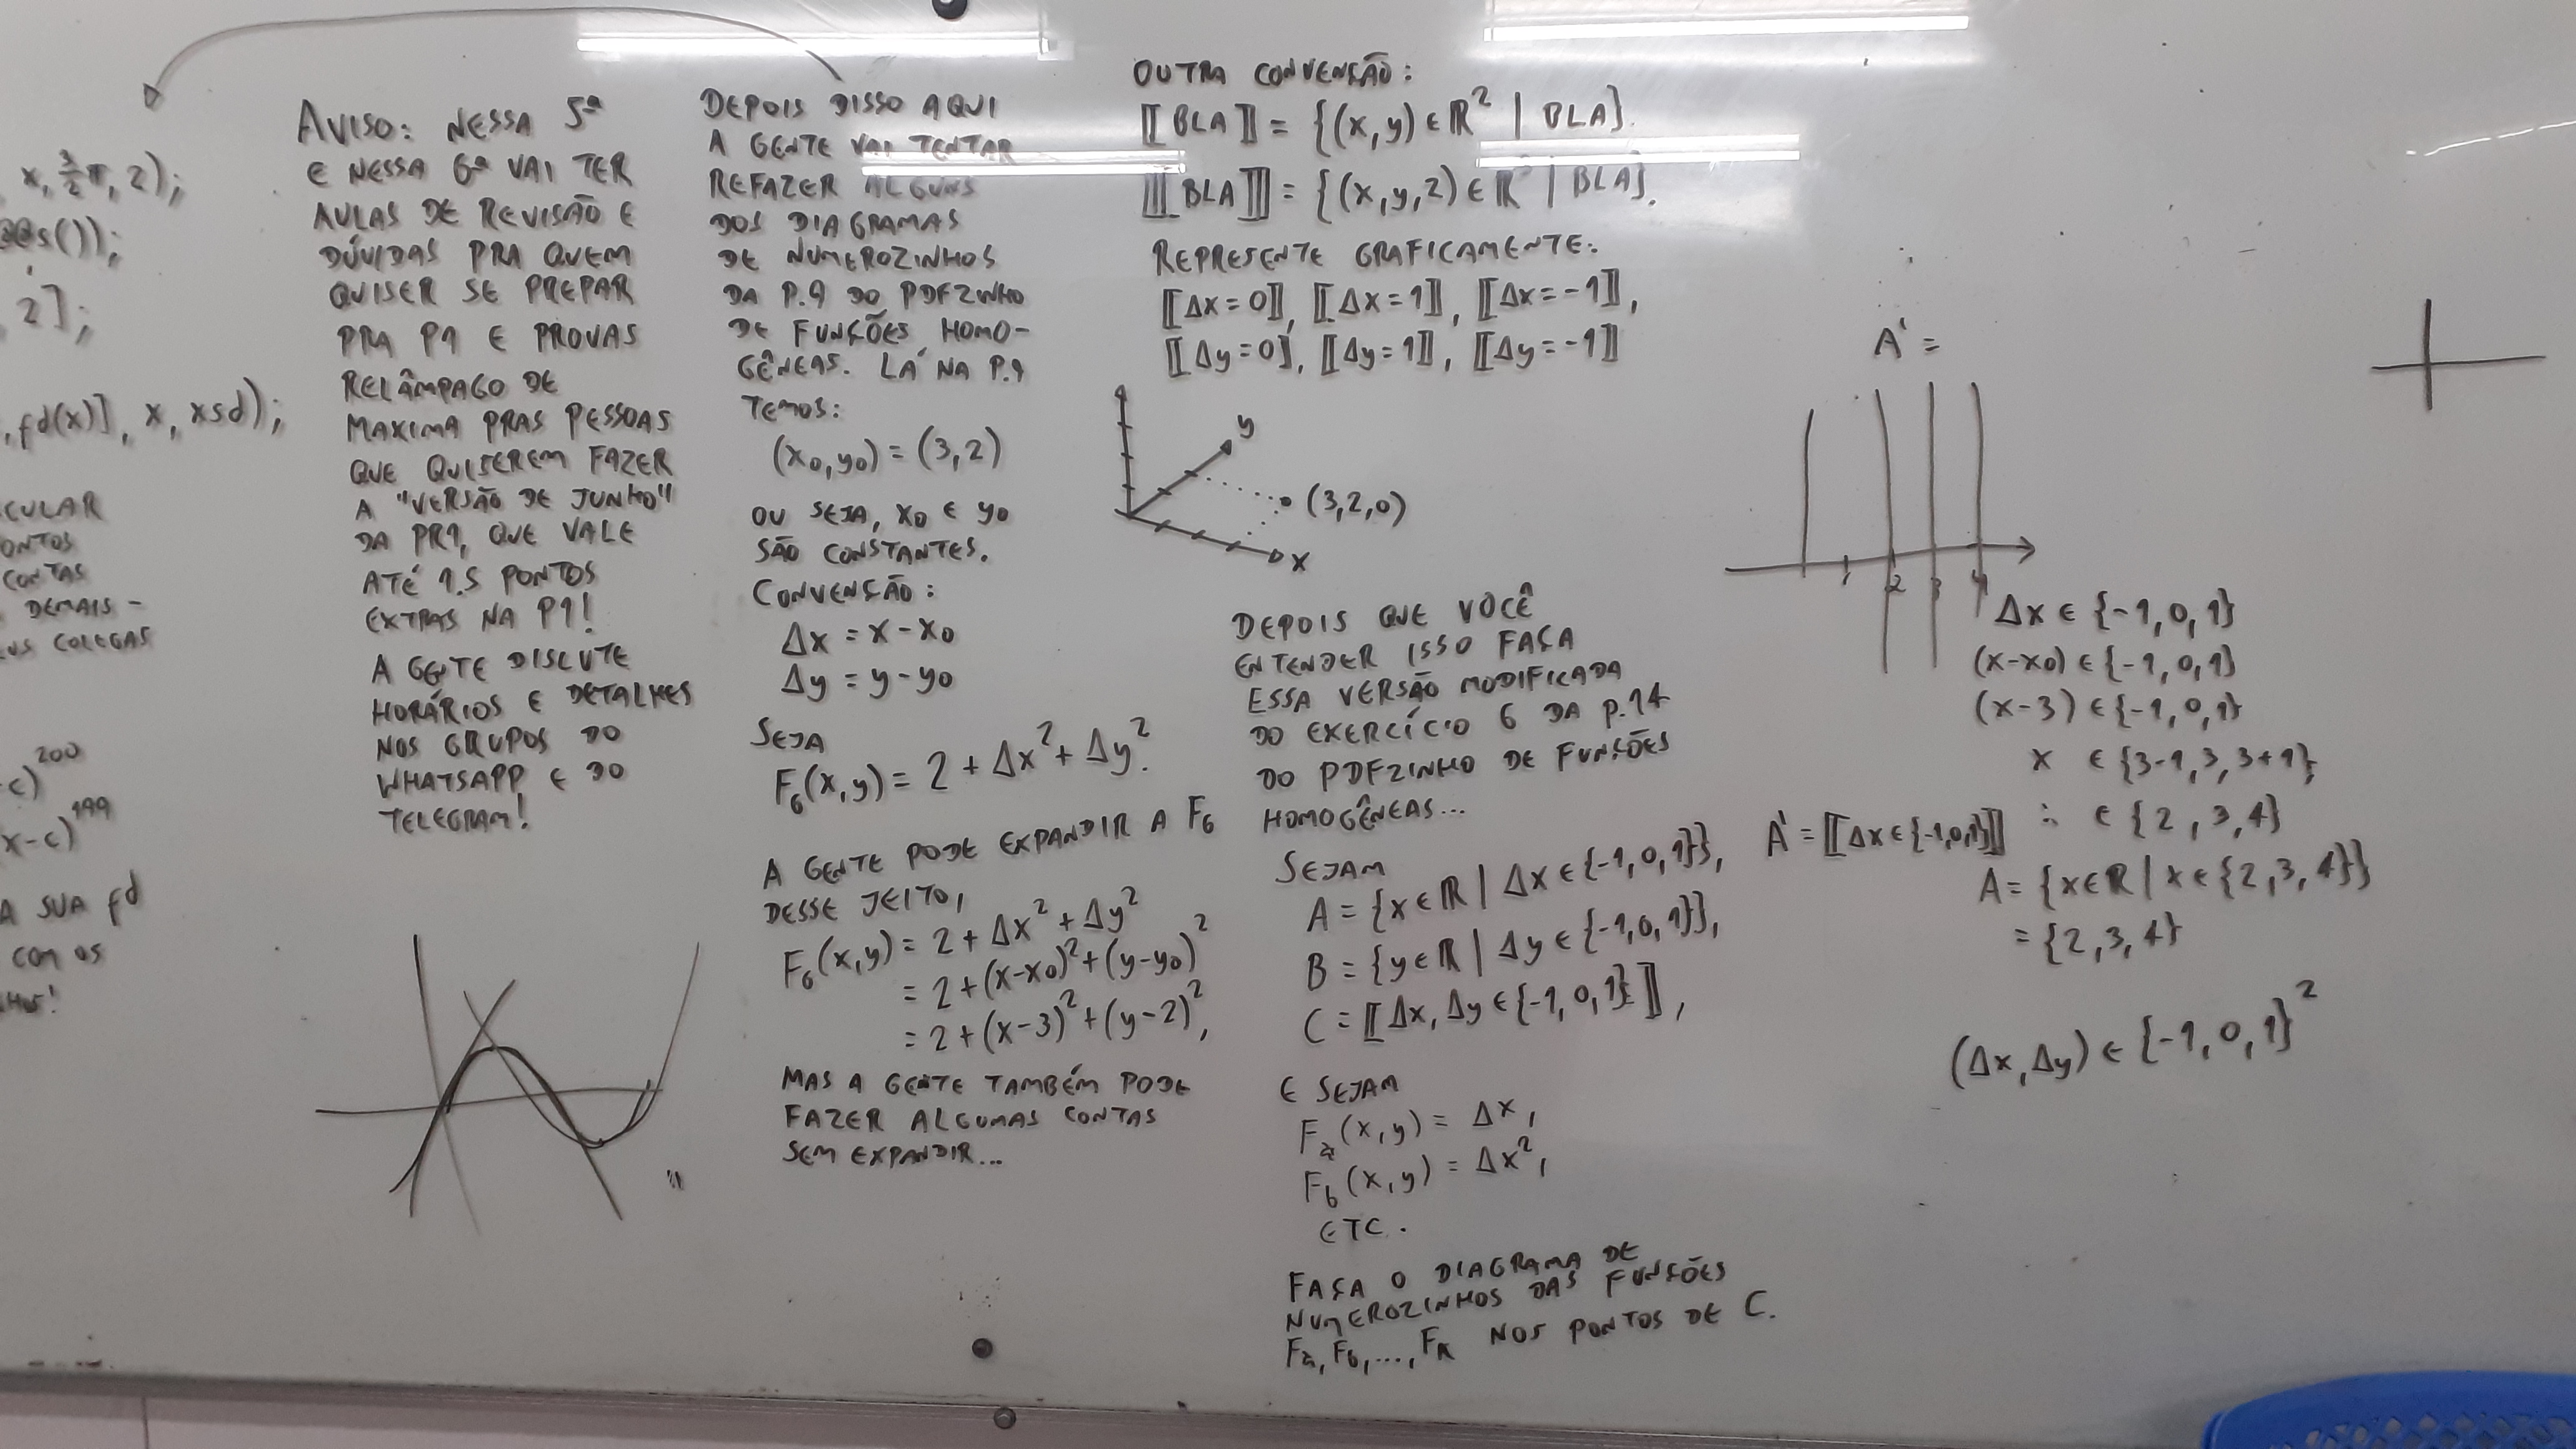 x, 3/2 π, 2);
s());
, 2];
, fd(x)], x, xsd);
CULAR
ONTOS
CONTAS
DEMAIS –
US COLEGAS
-c)^200
x-c)^199
A SUA fd
COM OS
AVISO: NESSA 5ª
E NESSA 6ª VAI TER
AULAS DE REVISÃO E
DÚVIDAS PRA QUEM
QUISER SE PREPAR
PRA P1 E PROVAS
RELÂMPAGO DE
MAXIMA PRAS PESSOAS
QUE QUISEREM FAZER
A "VERSÃO DE JUNHO"
DA PR1, QUE VALE
ATÉ 1.5 PONTOS
EXTRAS NA P1!
A GENTE DISCUTE
HORÁRIOS E DETALHES
NOS GRUPOS DO
WHATSAPP E DO
TELEGRAM!
DEPOIS DISSO AQUI
A GENTE VAI TENTAR
REFAZER ALGUNS
DOS DIAGRAMAS
DE NUMEROZINHOS
DA P.9 DO PDFZINHO
DE FUNÇÕES HOMO-
GÊNEAS. LÁ NA P.9
TEMOS:
(x0,y0) = (3,2)
OU SEJA, x0 E y0
SÃO CONSTANTES.
CONVENÇÃO:
Δx = x-x0
Δy = y-y0
SEJA
F6(x,y) = 2 + Δx² + Δy².
A GENTE PODE EXPANDIR A F6
DESSE JEITO,
F6(x,y) = 2 + Δx² + Δy²
= 2+(x-x0)²+(y-y0)²
= 2+(x-3)²+(y-2)²,
MAS A GENTE TAMBÉM PODE
FAZER ALGUMAS CONTAS
SEM EXPANDIR...
OUTRA CONVENÇÃO:
⟦BLA⟧ = {(x,y)∈ℝ² | BLA}.
[[[BLA]]] = {(x,y,z)∈ℝ | BLA}.
REPRESENTE GRAFICAMENTE:
⟦Δx=0⟧, ⟦Δx=1⟧, ⟦Δx=-1⟧,
⟦Δy=0⟧, ⟦Δy=1⟧, ⟦Δy=-1⟧
y
(3,2,0)
x
DEPOIS QUE VOCÊ
ENTENDER ISSO FAÇA
ESSA VERSÃO MODIFICADA
DO EXERCÍCIO 6 DA P.14
DO PDFZINHO DE FUNÇÕES
HOMOGÊNEAS...
SEJAM
A = {x∈ℝ | Δx∈{-1,0,1}},
B = {y∈ℝ | Δy∈{-1,0,1}},
C = ⟦Δx,Δy∈{-1,0,1}⟧,
E SEJAM
Fa(x,y) = Δx,
Fb(x,y) = Δx²,
ETC.
FAÇA O DIAGRAMA DE
NUMEROZINHOS DAS FUNÇÕES
Fa, Fb, ..., Fk NOS PONTOS DE C.
A' =
1 2 3 4
Δx ∈ {-1,0,1}
(x-x0) ∈ {-1,0,1}
(x-3) ∈ {-1,0,1}
x ∈ {3-1,3,3+1}
∴ ∈ {2,3,4}
A' = ⟦Δx∈{-1,0,1}⟧
A = {x∈ℝ | x∈{2,3,4}}
= {2,3,4}
(Δx,Δy) ∈ {-1,0,1}²